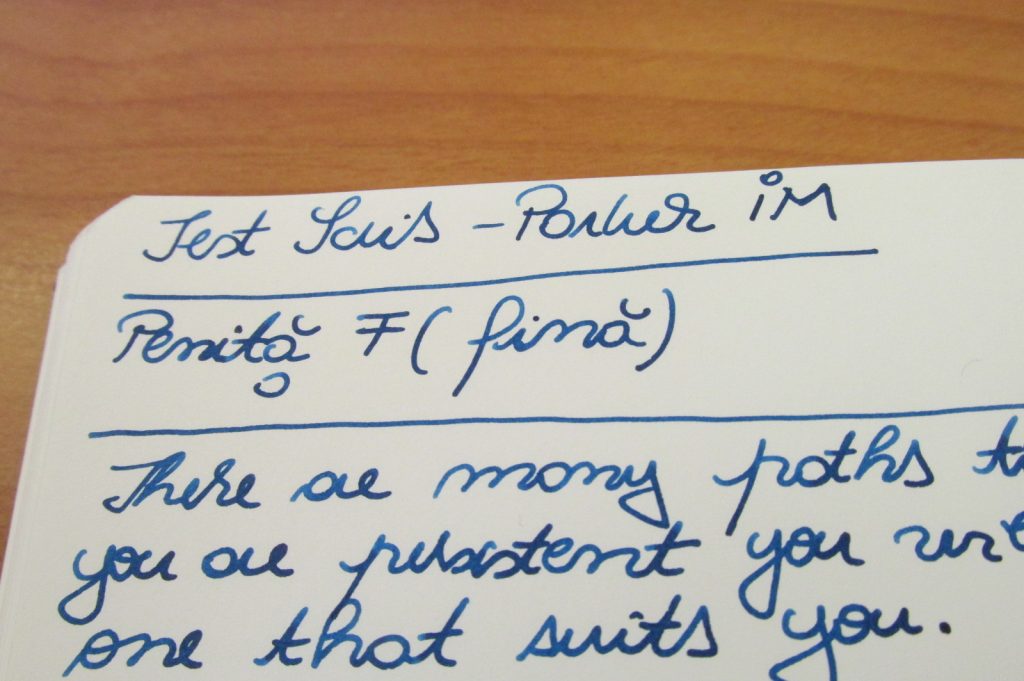 Test Scris - Parker IM
Peniță F (fină)
There are many paths
you are persistent you
one that suits you.